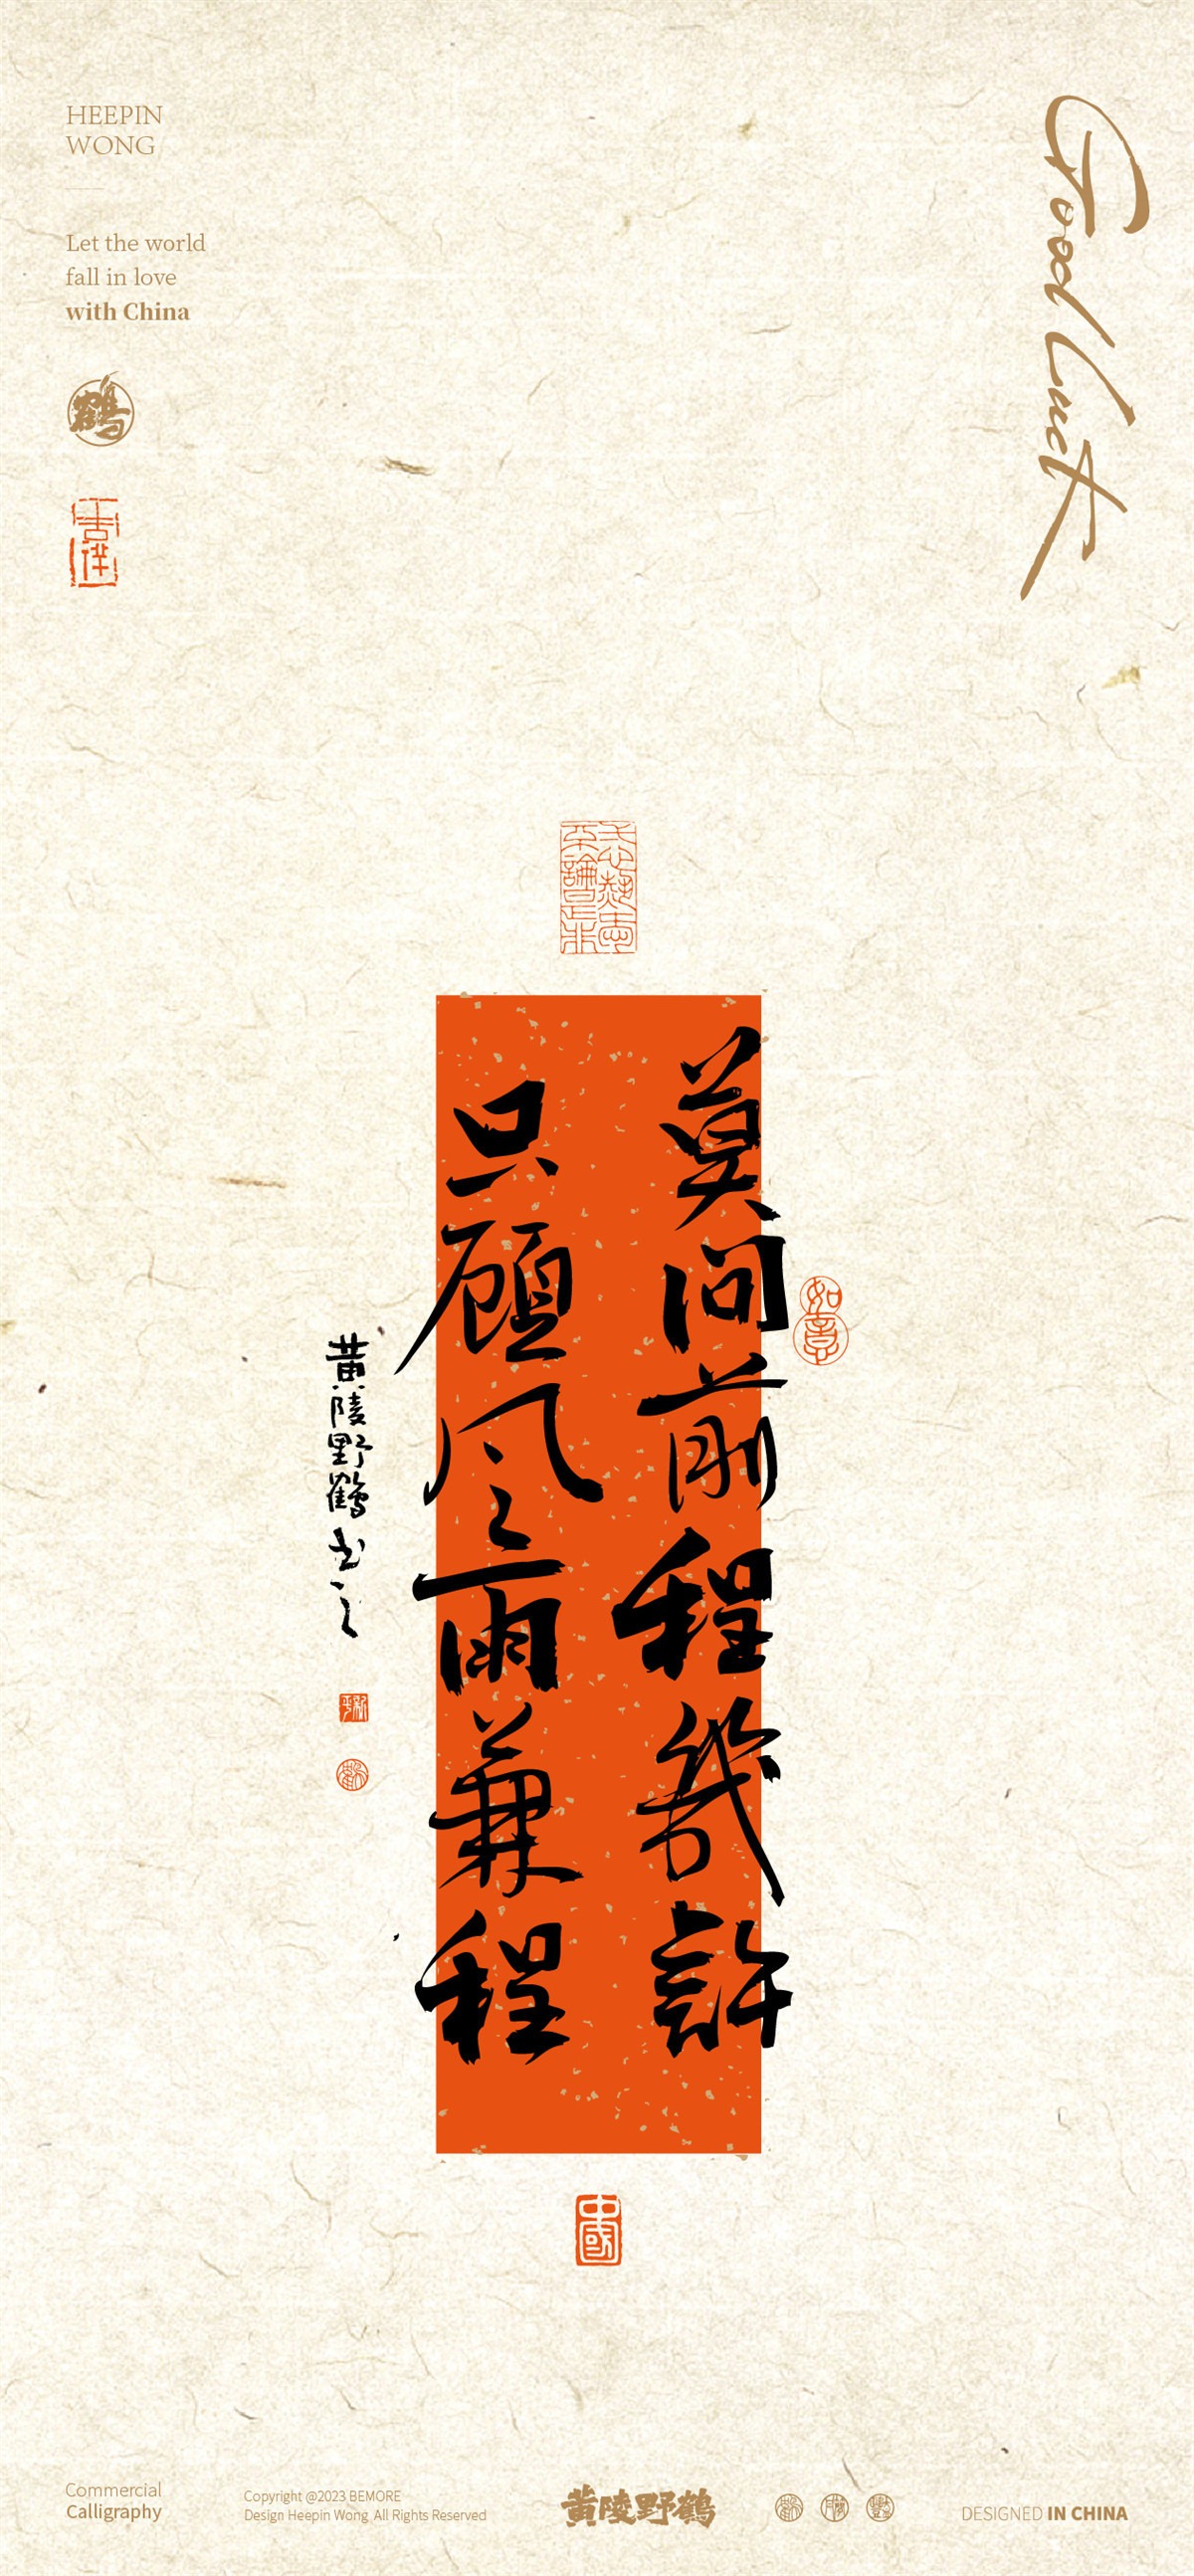 HEEPIN
WONG
Let the world
fall in love
with China
鶴
吉祥
Good luck
莫问前程幾許
只顧风雨兼程
如意
黄陵野鶴书之
中國
Commercial
Calligraphy
Copyright @2023 BEMORE
Design Heepin Wong. All Rights Reserved
黄陵野鶴
DESIGNED IN CHINA